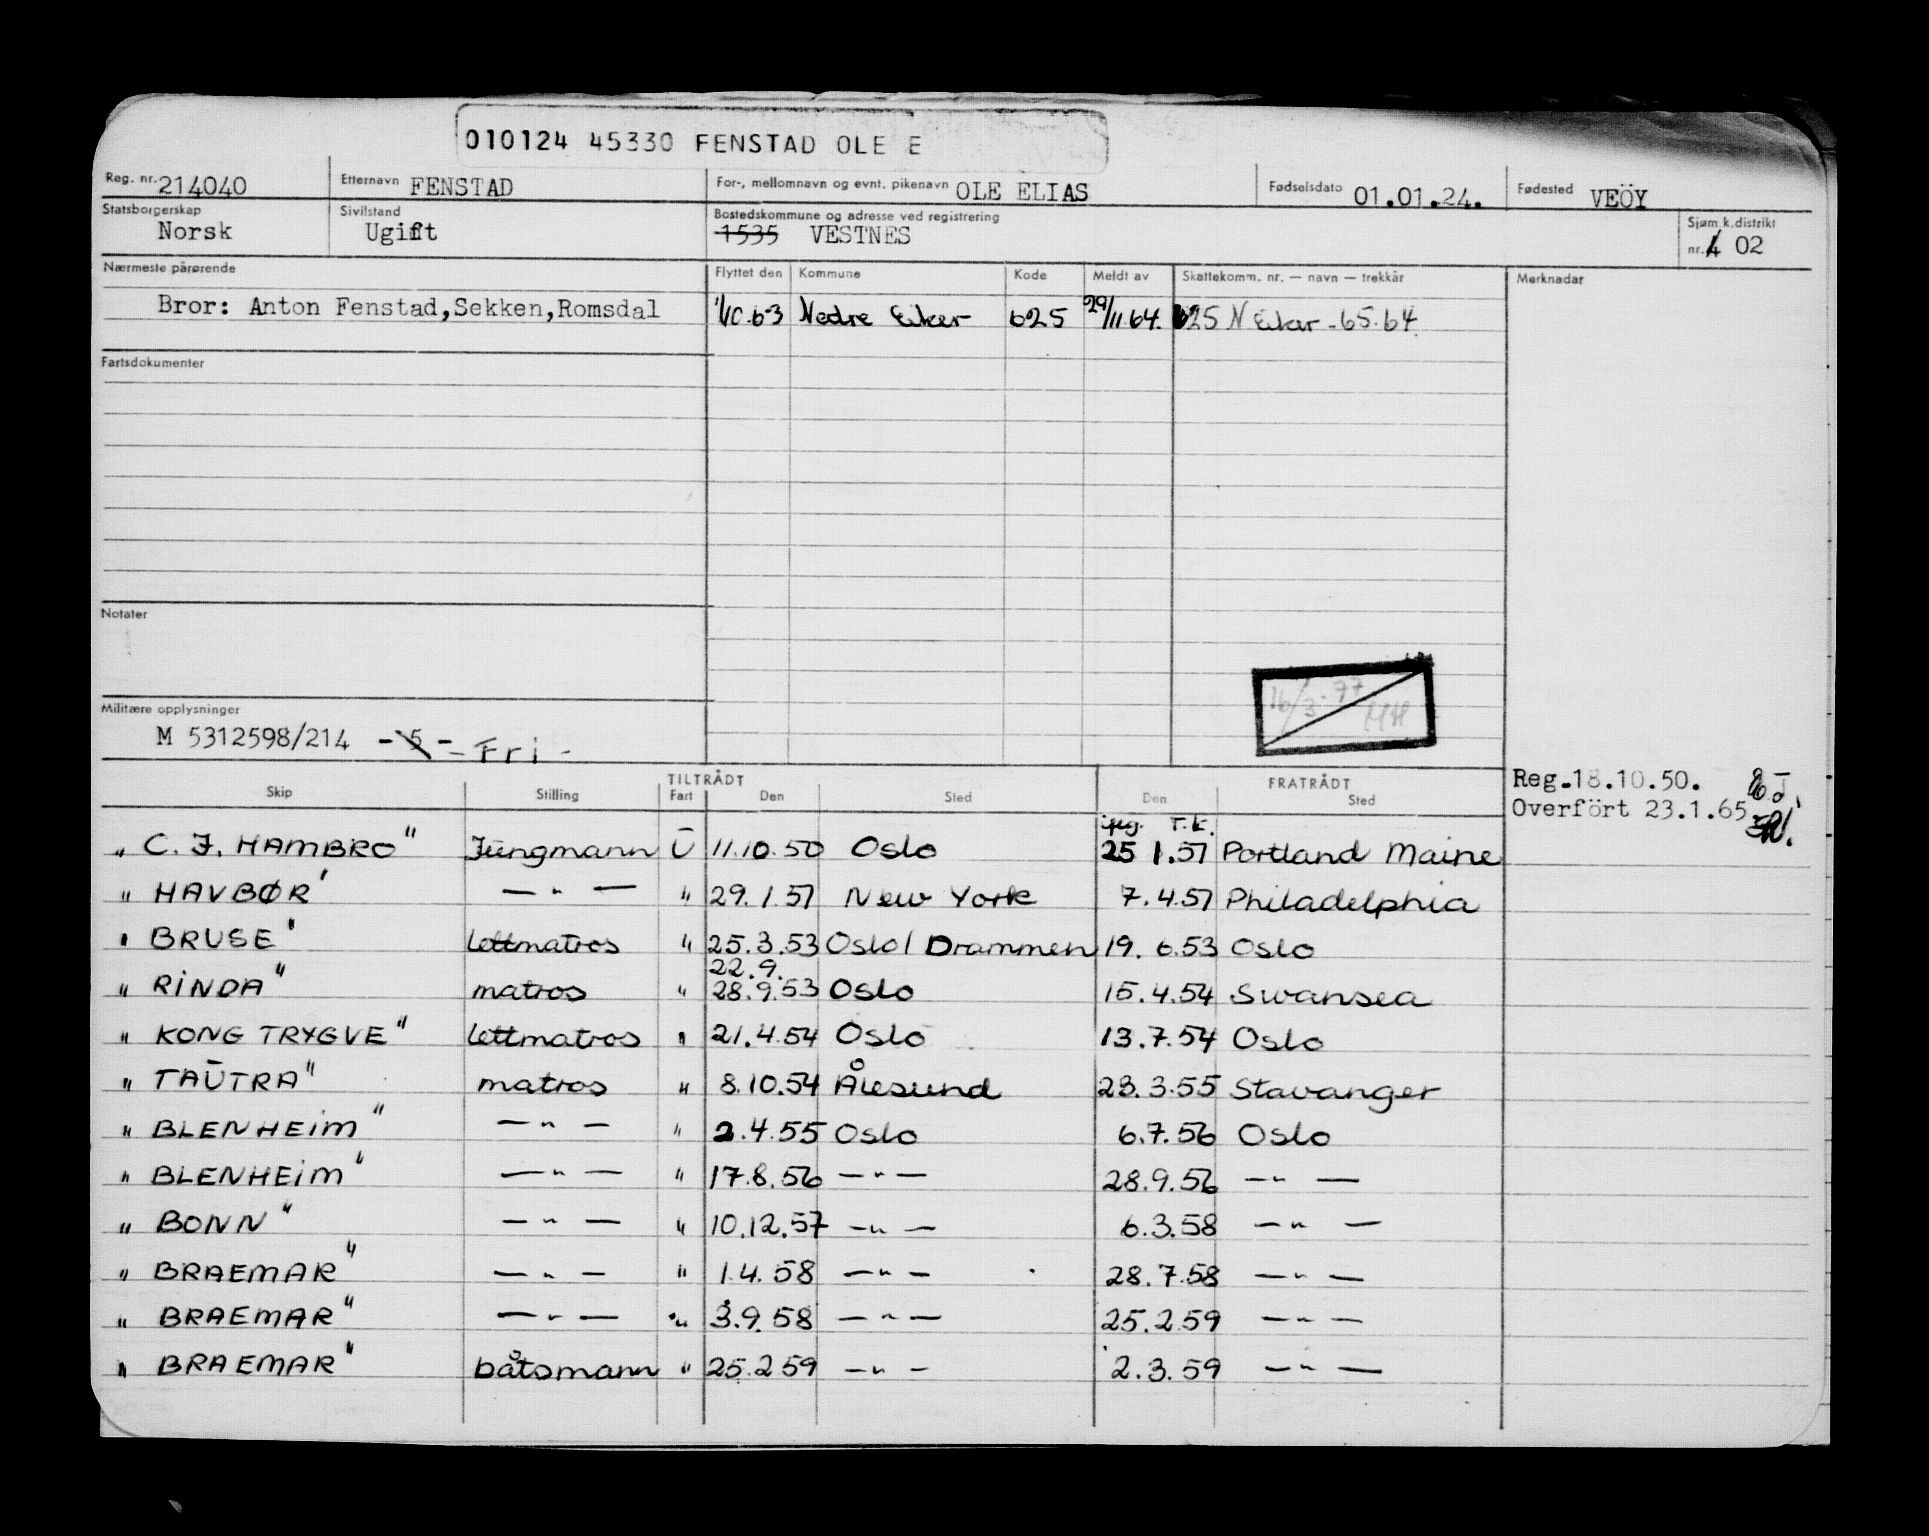 010124 45330 FENSTAD OLE E
Reg. nr. 214040 Etternavn FENSTAD For-, mellomnavn og evnt. pikenavn OLE ELIAS Fødselsdato 01.01.24. Fødested VEÖY
Statsborgerskap Norsk Sivilstand Ugift Bostedskommune og adresse ved registrering 1535 VESTNES Sjøm.k.distrikt nr. 02
Nærmeste pårørende Flyttet den Kommune Kode Meldt av Skattekomm. nr. — navn — trekkår Merknader
Bror: Anton Fenstad,Sekken,Romsdal 1/10.63 Nedre Eiker 625 29/11.64. 625 N Eiker - 65.64
Fartsdokumenter
Notater
16/3-77 HH
Militære opplysninger
M 5312598/214 - 5 - - Fri -
Reg.18.10.50.
Overfört 23.1.65
TILTRÅDT FRATRÅDT
Skip Stilling Fart Den Sted Den Sted
T.K.
" C. J. HAMBRO " Jungmann U 11.10.50 Oslo 25 1.51 Portland Maine
" HAVBØR ' — " — " 29.1.51 New York 7.4.51 Philadelphia
" BRUSE " lettmatros " 25.3.53 Oslo/ Drammen 19. 6.53 Oslo
22.9.
" RINDA " matros " 28.9.53 Oslo 15.4.54 Swansea
" KONG TRYGVE " lettmatros " 21.4.54 Oslo 13.7.54 Oslo
" TAUTRA " matros " 8.10.54 Ålesund 23.3.55 Stavanger
" BLENHEIM " — " — " 2.4.55 Oslo 6.7.56 Oslo
" BLENHEIM " — " — " 17.8.56 — " — 28.9.56 — " —
" BONN " — " — " 10.12.57 — " — 6.3.58 — " —
" BRAEMAR " — " — " 1.4.58 — " — 28.7.58 — " —
" BRAEMAR " — " — " 3.9.58 — " — 25.2.59 — " —
" BRAEMAR " båtsmann " 25.2.59 — " — 2.3.59 — " —